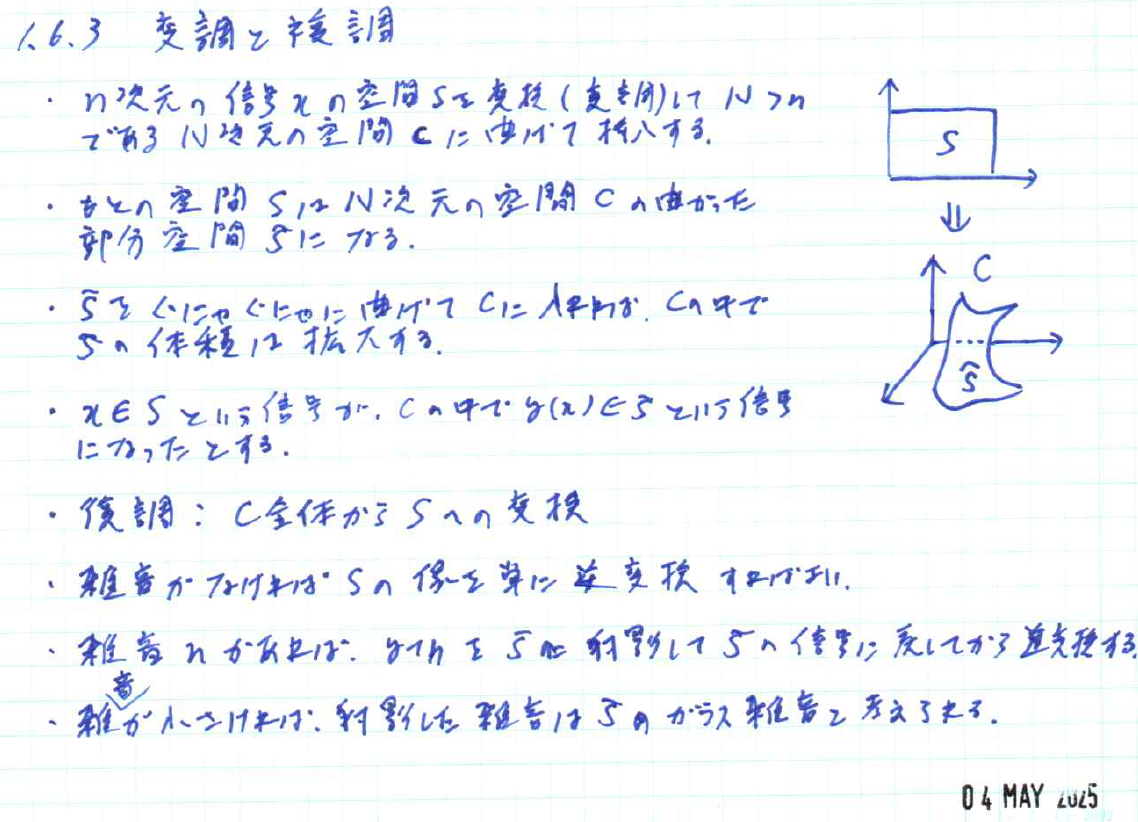 1.6.3 変調と復調
・n次元の信号xの空間Sを変換(変調)して N>n
である N次元の空間 C に曲げて挿入する.
・もとの空間 SはN次元の空間Cの曲がった
部分空間 S̃になる.
・S̃を ぐにゃぐにゃに曲げて Cに入れれば、Cの中で
S̃の体積は拡大する.
・x∈S という信号が、Cの中で y(x)∈S̃ という信号
になったとする.
・復調: C全体から Sへの変換
・雑音がなければ Sの像を単に逆変換すればよい.
・雑音nがあれば、y+nを S̃に射影して S̃の信号に戻してから逆変換する.
・雑音が小さければ、射影した雑音は S̃のガウス雑音と考えられる.
S
⇓
C
S̃
04 MAY 2025